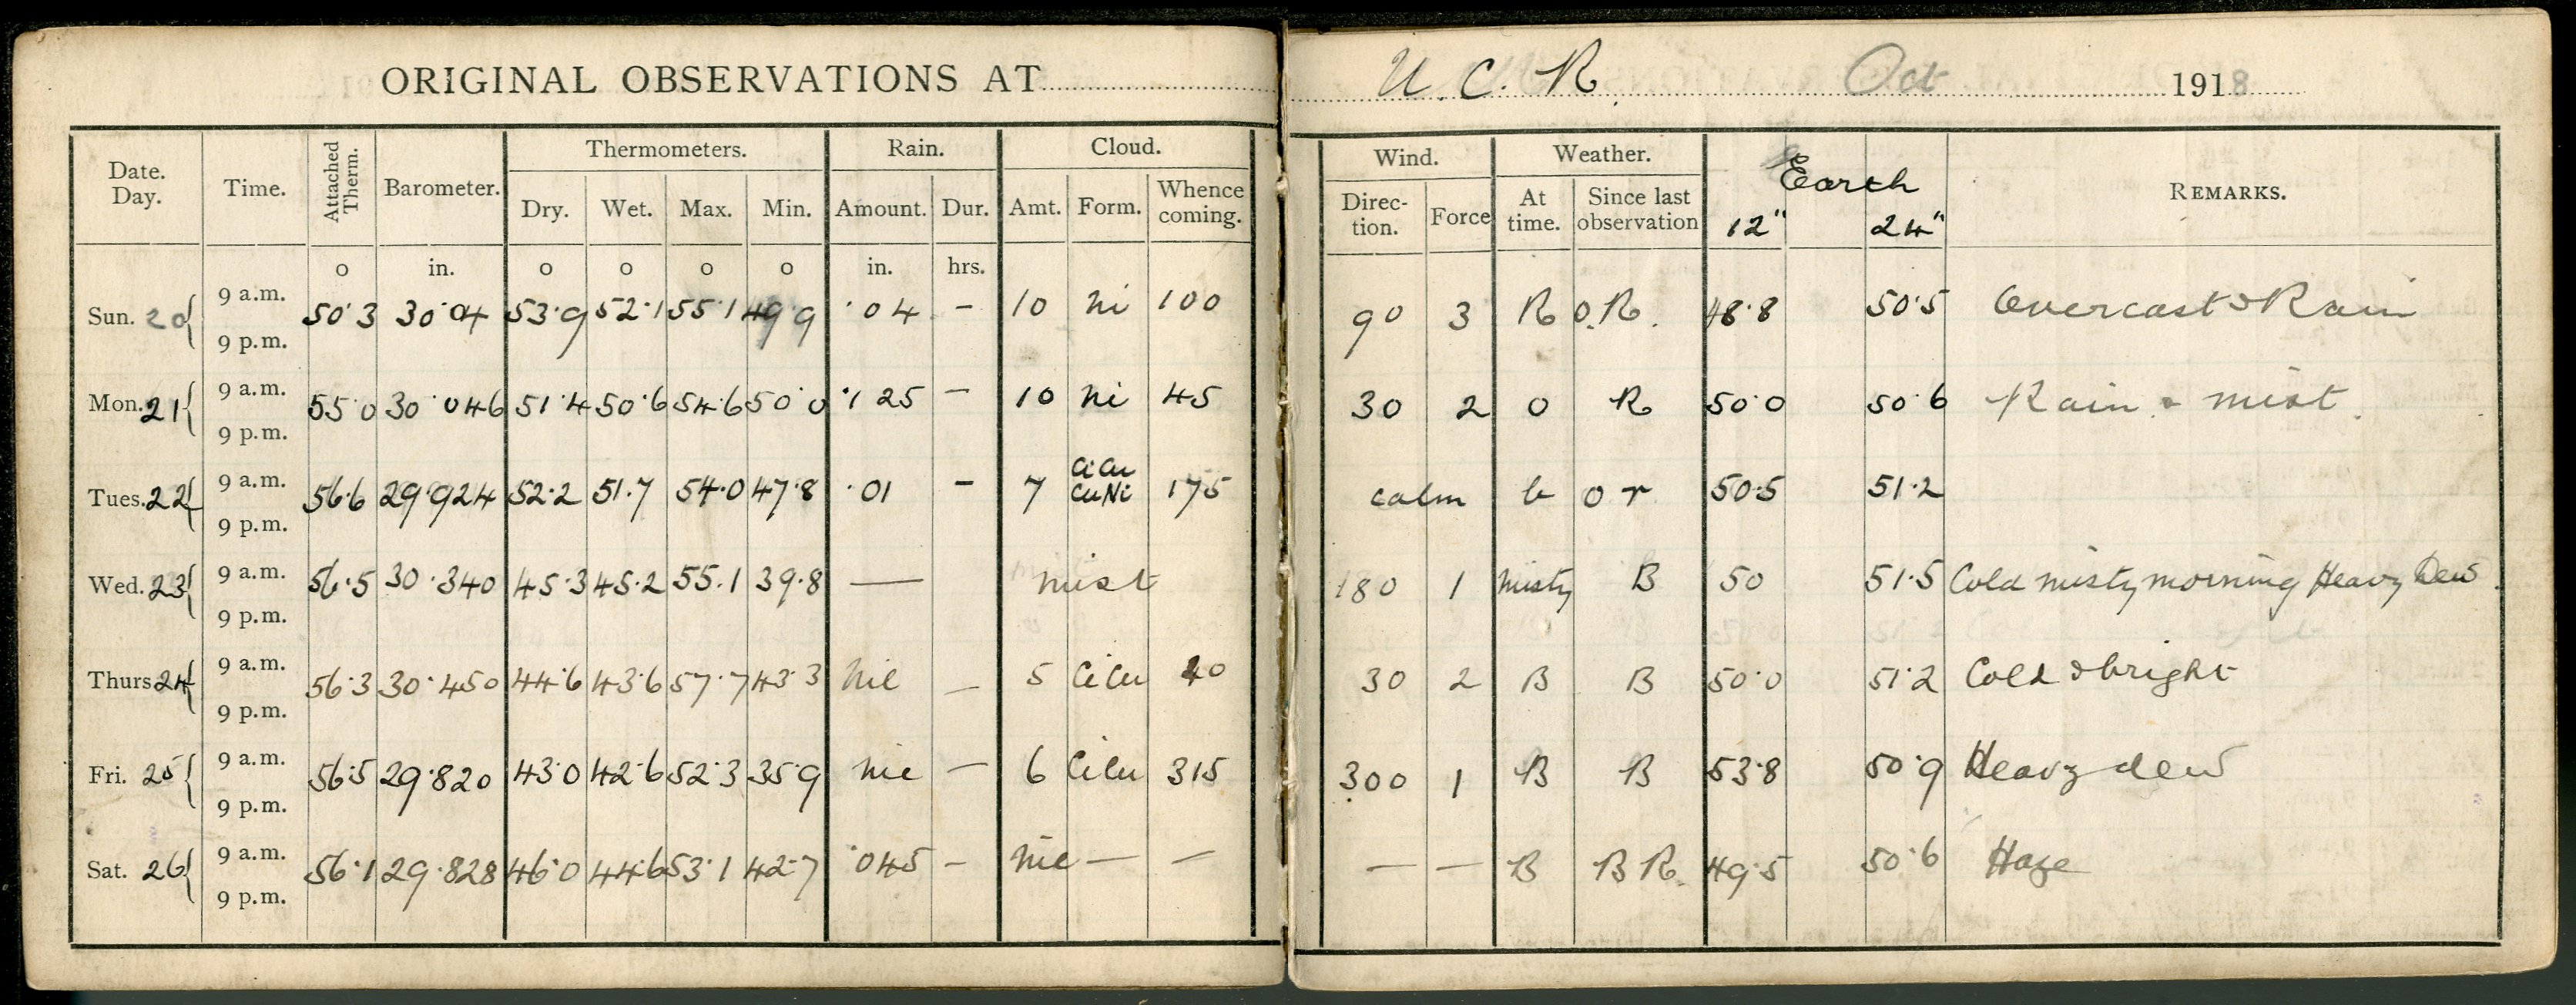 ORIGINAL OBSERVATIONS AT U. C. R. Oct 1918
Date. Day. Time. Attached Therm. Barometer. Thermometers. Rain. Cloud. Wind. Weather. Earth REMARKS.
Dry. Wet. Max. Min. Amount. Dur. Amt. Form. Whence coming. Direction. Force At time. Since last observation 12" 24"
o in. o o o o in. hrs.
Sun. 20 9 a.m. 50·3 30·04 53·9 52·1 55·1 49·9 ·04 – 10 Ni 100 90 3 R O.R. 48·8 50·5 Overcast & Rain
9 p.m.
Mon. 21 9 a.m. 55·0 30·046 51·4 50·6 54·6 50·0 ·125 – 10 Ni 45 30 2 O R 50·0 50·6 Rain & mist.
9 p.m.
Tues. 22 9 a.m. 56·6 29·924 52·2 51·7 54·0 47·8 ·01 – 7 CiCu CuNi 175 calm b o r 50·5 51·2
9 p.m.
Wed. 23 9 a.m. 56·5 30·340 45·3 45·2 55·1 39·8 — mist 180 1 Misty B 50 51·5 Cold misty morning Heavy Dew.
9 p.m.
Thurs 24 9 a.m. 56·3 30·450 44·6 43·6 57·7 43·3 Nil – 5 CiCu 20 30 2 B B 50·0 51·2 Cold & bright
9 p.m.
Fri. 25 9 a.m. 56·5 29·820 43·0 42·6 52·3 35·9 Nil – 6 CiCu 315 300 1 B B 53·8 50·9 Heavy dew
9 p.m.
Sat. 26 9 a.m. 56·1 29·828 46·0 44·6 53·1 42·7 ·045 – Nil — — — — B B R. 49·5 50·6 Haze
9 p.m.